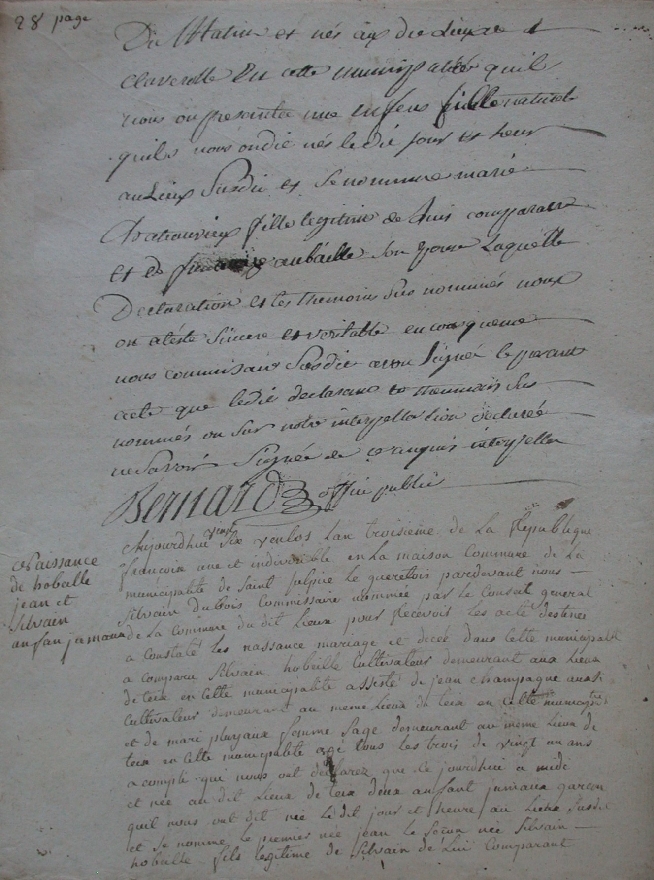 28 page
Du Matin et nés aux die Lieux de
claverolle En cette municipalité quils
nous on presenter une enfens fille naturele
quils nous on die nés ledie jour et heur
au Lieux Susdie et Se nommer marie
fille legitime de luis comparant
et de aubaille Son epouse Laquelle
Declaration et les themoins Sus nommés nous
on atésté Sincere et veritable en conséquence
nous commisair Susdie avon Signée le presant
acte que ledie declarant et themoins Sus
nommés on Sur notre interpellation declarée
ne Savoir Signée de ce anquis interpeller
Bernard office public
Naissance
de hobaille
jean et
Silvain
anfan jumaux
Aujourdhui vengt Six l'an troisieme de La Republique
francoise une et indivisible en La maison Commune de La
municipalité de Saint Sulpice Le queretois pardevant nous
Silvain duBois Commissaire nommée par le Conseil general
de la Commune du dit Lieux pour Recevoir Les acte destinés
a constaté Les nassance mariage et decée dans Cette municipalité
a comparu Silvain hobaille Cultivateur demeurant aux Lieux
de teix en Cette municipalité assisté de jean champagne aussi
Cultivateur demeurant au même Lieux de teix en Cette municipalité
et de mari femme Sage demeurant au même Lieux de
teix en Cette municipalité agé tous Les trois de vingt un ans
acompli qui nous ont déclarez que ce jourdhui a midi
et née au dit Lieux de teix deux anfant jumaux garcon
quil nous ont dit née Ledit jour et heure au Lieux Susdit
et Se nomme Le premier née jean Le Segon née Silvain
hobaille fils Legitime de Silvain de Lui Comparant